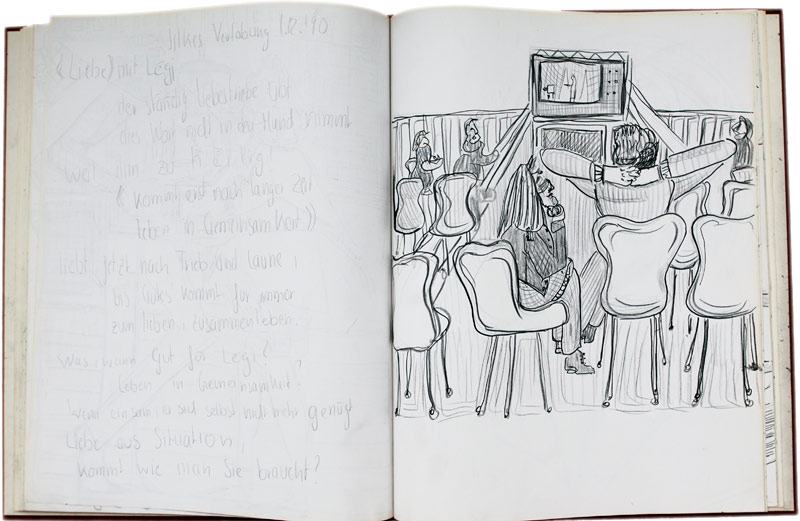 Silkes Verlobung 1.12.'90
(Liebe) mit Legi
der ständig Liebestriebe
dies War nicht in der Hand nimmt
weil ihm zu
(( kommt erst nach langer Zeit
Leben in Gemeinsamkeit ))
liebt jetzt nach Trieb und Laune,
bis Gutes kommt für immer
zum lieben, zusammenleben.
was wann Gut für Legi?
Leben in Gemeinsamkeit?
Wenn einsam, er sich selbst nicht mehr genügt
Liebe aus Situation,
kommt wie man Sie braucht?